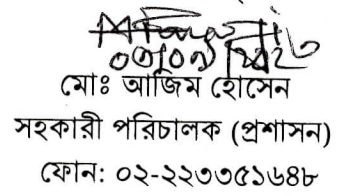 মোঃ আজিম হোসেন
সহকারী পরিচালক (প্রশাসন)
ফোন: ০২-২২৩৩৫১৬৪৮